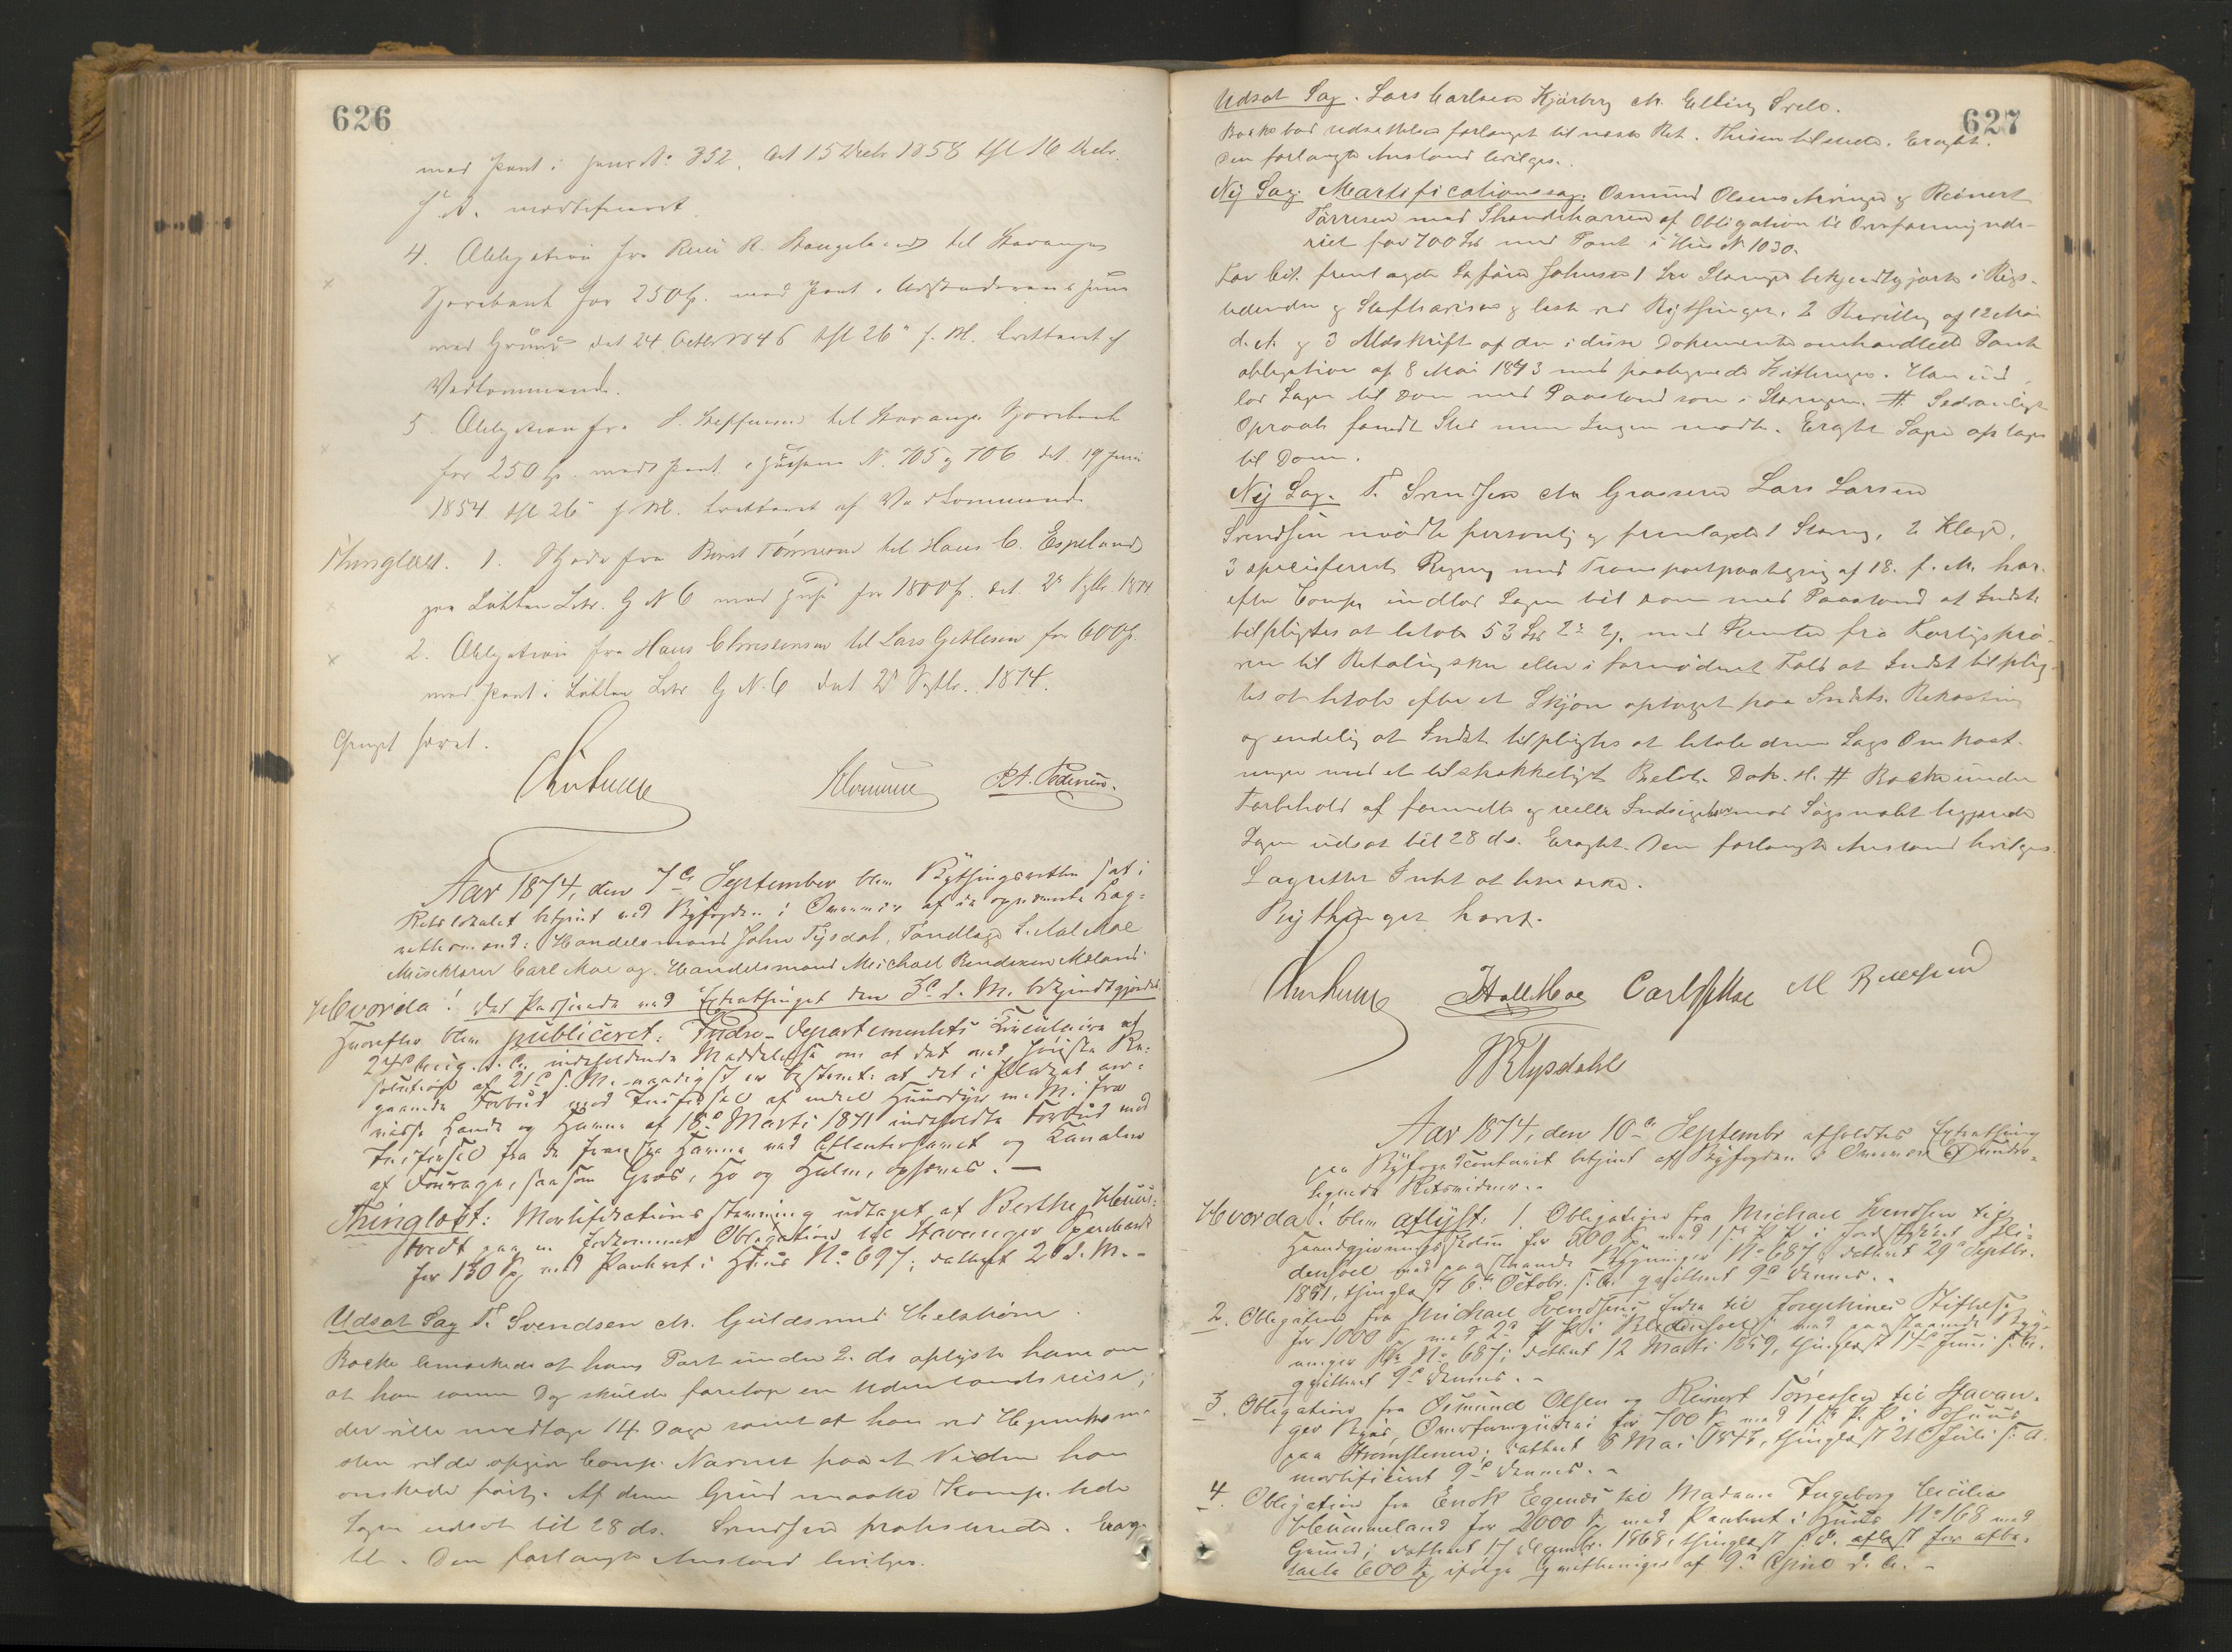 626
med Pant i Huus No 352, dat 15 Decbr 1858 tgl 16 Decbr.
s. A. mortificeret.
4. Obligation fra R. Stangeland til Stavanger
Sparebank for 250 Sp. med Pant i Udstederens Huus
med Grund dat 24 Octbr 1846 tgl 26 s. M. kvitteret af
Vedkommende.
5. Obligation fra S. Steffensen til Stavanger Sparebank
for 250 Sp. med Pant i Husene N. 705 og 706 dat. 19 Juni
1854 tgl 26 s. M. kvitteret af Vedkommende
Thinglæst. 1. Skjøde fra Berent Tønnesen til Hans C. Espeland
paa Løkken Litr. G N 6 med Huse for 1800 Sp. dat. 2d Septbr. 1874
2. Obligation fra Hans Christensen til Lars Gitlesen for 600 Sp.
med Pant i Løkken Litr G N. 6 dat 2d Septbr. 1874.
Thinget hævet.
P. A. Pedersen.
Aar 1874, den 7de September blev Bythingsretten sat i
Retslokalet betjent ved Byfogden i Overvær af de opnævnte Lag-
rettesmænd: Handelsmand John Tysdal, Tandlæge S. Hall Moe
Carl Moe og Handelsmand Michael Bendixen Meland
Hvorda! det Passerede ved Extrathinget den 3de d. M. bekjendtgjordes
Hvorefter blev publiceret: Indre-Departementets Circulaire af
24de Aug. d. A. indeholdende Meddelelse om at det ved høieste Re-
solution af 21de s. M. naadigst er bestemt: at det i Plakat an-
gaaende Forbud mod Indførsel af enkelte Huusdyr m. M. fra
visse Lande og Havne af 18de Marts 1871 indeholdte Forbud mod
Indførsel fra de franske Havne ved Atlanterhavet og Kanalen
af Fourage, saasom Græs, Hø og Halm, ophæves. —
Thinglæst: Mortifikationsstevning udtaget af Berthe
tvedt paa en bortkommet Obligation til Stavanger Sparebank
for 150 Sp med Panteret i Huus No 697; dateret 2 d. M. -
Udsat Sag T. Svendsen ctr. Guldsmed Helstrøm.
Backe bemærkede at hans Part under 2. ds oplyste ham om
at han samme Dag skulde foretage en Udenlandsreise;
der vilde medtage 14 Dage samt at han ved Hjemkom-
sten vilde opgive Comp. Navnet paa et Vidne han
ønskede ført. Af denne Grund maatte Komp. bede
Sagen udsat til 28 ds. Svendsen protesterede. Erag-
tet. Den forlangte Anstand bevilges.
627
Udsat Sag. Lars Carlsen Kjørberg ctr. Elling Svele.
Backe bad udsættelse forlanget til næste Ret. Thisen tilstede. Eragtet.
Den forlangte Anstand bevilges.
Ny Sag. Mortificationssag. Osmund Olsens og Reinert
Tørresen med af Obligation til Overformynde-
riet for 700 Spd med Pant i Hus N 1030.
For Cit. fremlagde Sagfører Johnsen 1 Stevning bekjendtgjort i Rigs-
tidenden og Stiftsavisen og læst ved Bythinget. 2 Bevilling af 12 Mai
d. A. og 3 Afskrift af den i disse Dokumenter omhandlede Pante
obligation af 8 Mai 1843 med paategnede Kvitteringer. Han ind
lod Sagen til Dom med Paastand som i Stevningen. # Sedvanligt
Opraab fandt Sted men Ingen mødte. Eragtet Sagen optages
til Dom.
Ny Sag. T. Svendsen ctr. Grosserer Lars Larsen
Svendsen mødte personlig og fremlagde 1 Stevning, 2 Klage,
3 specificeret Regning med Transportpaategning af 18. f. M. hvor-
efter Comp. indlod Sagen til Dom med Paastand at Indst.
tilpligtes at betale 53 Spd 2 β med Renter fra Forligsprø-
ven til Betaling sker eller i fornødent Fald at Indst tilplig-
tes at betale efter et Skjøn optaget paa Indsts. Bekostning
og endelig at Indst tilpligtes at betale denne Sags Omkost-
ninger med et tilstrækkeligt Beløb. Dok. H. # Backe under
Forbehold af formelle og reelle Indsigelser mod Søgsmalet begjærede
Sagen udsat til 28 ds. Eragtet. Den forlangte Anstand bevilges.
Lagretten Intet at bemærke.
Bythinget hævet.
S Hall Moe Carl Moe M Bendixen
Tysdahl
Aar 1874, den 10de Septembr afholdtes Extrathing
paa Byfogedcontoiret betjent af Byfogden i Overvær af under-
tegnede Retsvidner. -
Hvorda! blev aflyst: 1. Obligation fra Michael Svendsen til
Haandgjerningsskolen for 500 Sp. med 1ste P. P. i Jordstykket Bli-
densoel med paastaaende Bygninger No 687; dateret 29de Septbr.
1861, thinglæst 6te Octobr. s. A. qvitteret 9de dennes. -
2. Obligation fra Michael Svendsens Enke til Josephines Stiftelse
for 1000 Sp med 2d P. P. i Blidensoel med paastaaende Byg-
ninger No 687; dateret 12 Marts 1859, thinglæst 14de Juni s. A.
qvitteret 9de dennes. -
3. Obligation fra Osmund Olsen og Reinert Tørresen til Stavan-
ger Byes Overformynderi for 700 Sp. med 1ste P. P. i Huus
paa Strømsteenen; dateret 8 Mai 1843, thinglæst 21de Juli s. A.
mortificeret 9de dennes. -
4. Obligation fra Enok Egenes til Madame Ingeborg Cecilie
Hummeland for 2000 Sp med Panteret i Huus No 168 med
Grund; dateret 17 Decembr. 1868, thinglæst s. D. aflæst for afbe-
talte 600 Sp ifølge Qvitteringer af 9de April d. A. -